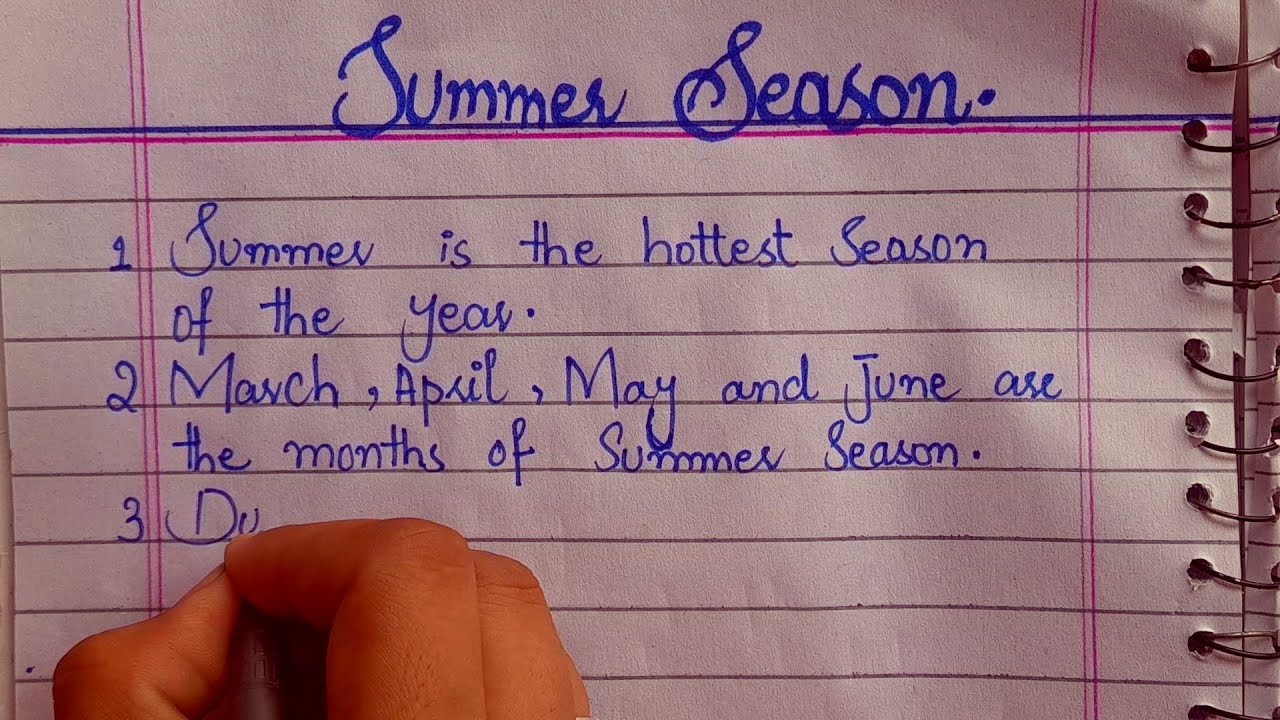 Summer Season.
1 Summer is the hottest Season
of the year.
2 March, April, May and June are
the months of Summer Season.
3 Du